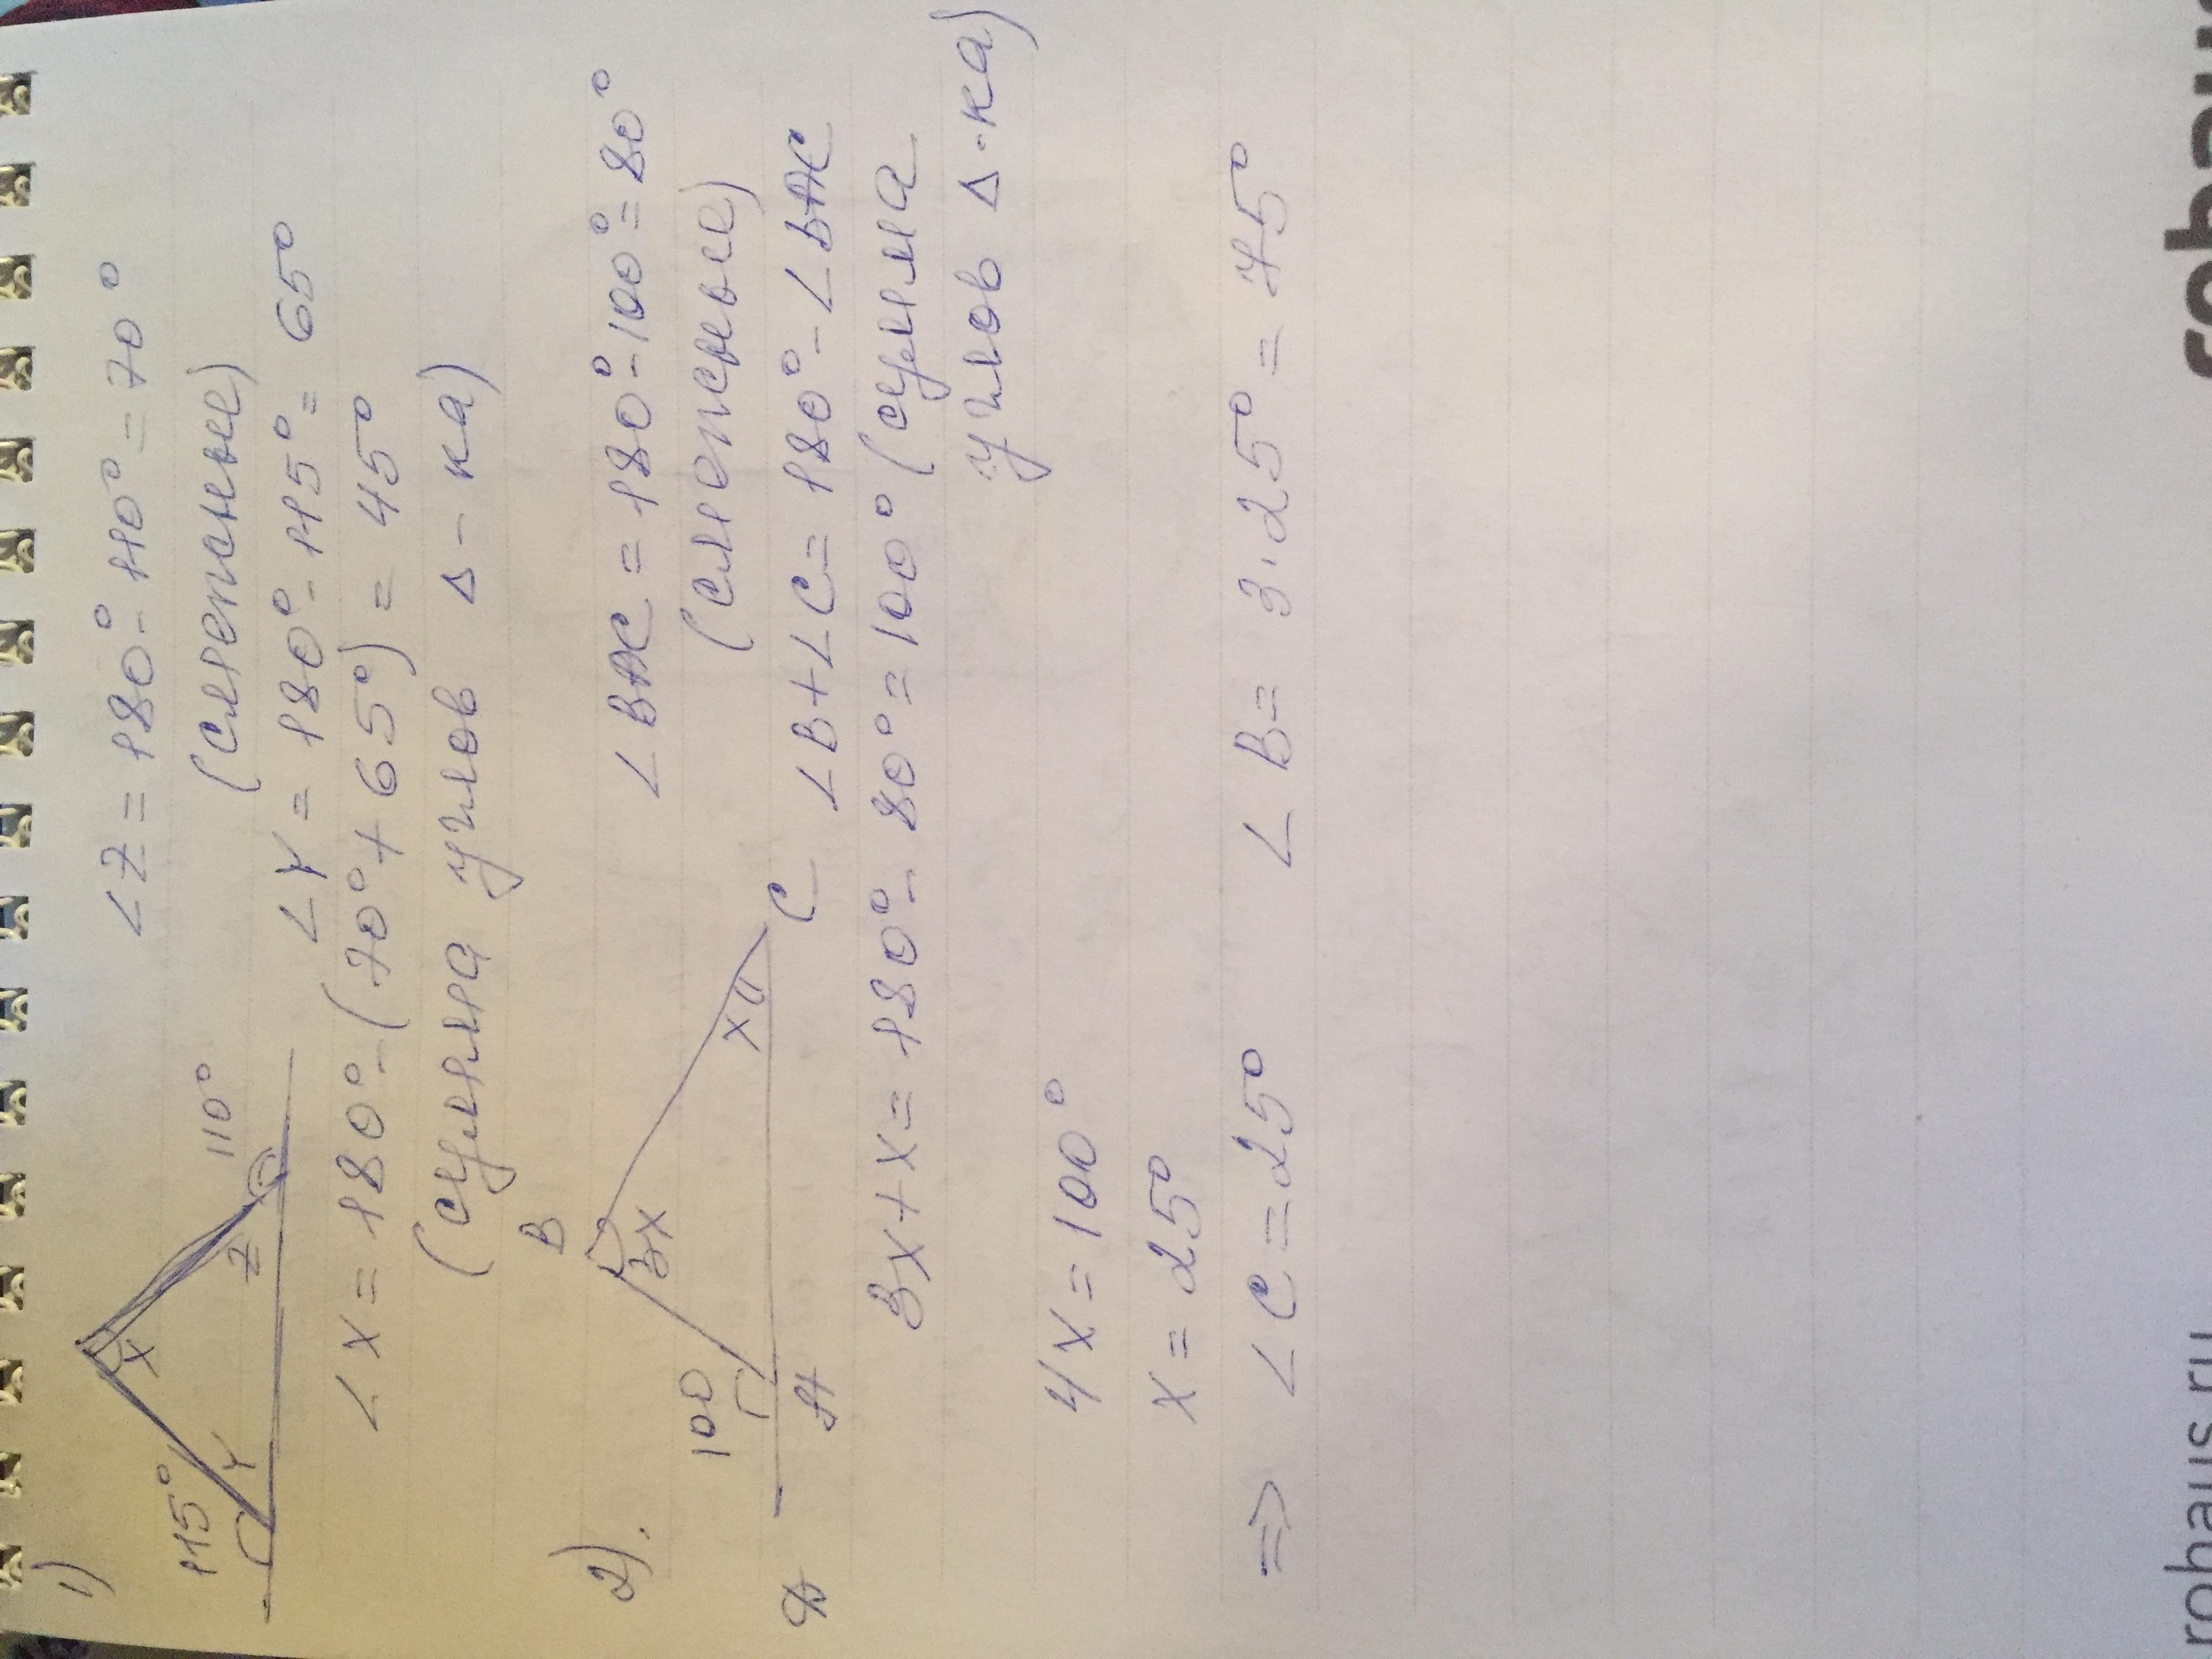 1)
115°
x
Y
Z
110°
∠Z = 180° - 110° = 70°
(смежные)
∠Y = 180° - 115° = 65°
∠X = 180° - (70° + 65°) = 45°
(сумма углов Δ - ка)
2).
B
100
3x
x
D
A
C
∠BAC = 180° - 100° = 80°
(смежные)
∠B + ∠C = 180° - ∠BAC
3x + x = 180° - 80° = 100° (сумма
углов Δ-ка)
4x = 100°
x = 25°
=> ∠C = 25° ∠B = 3 · 25° = 75°
rohaus.ru